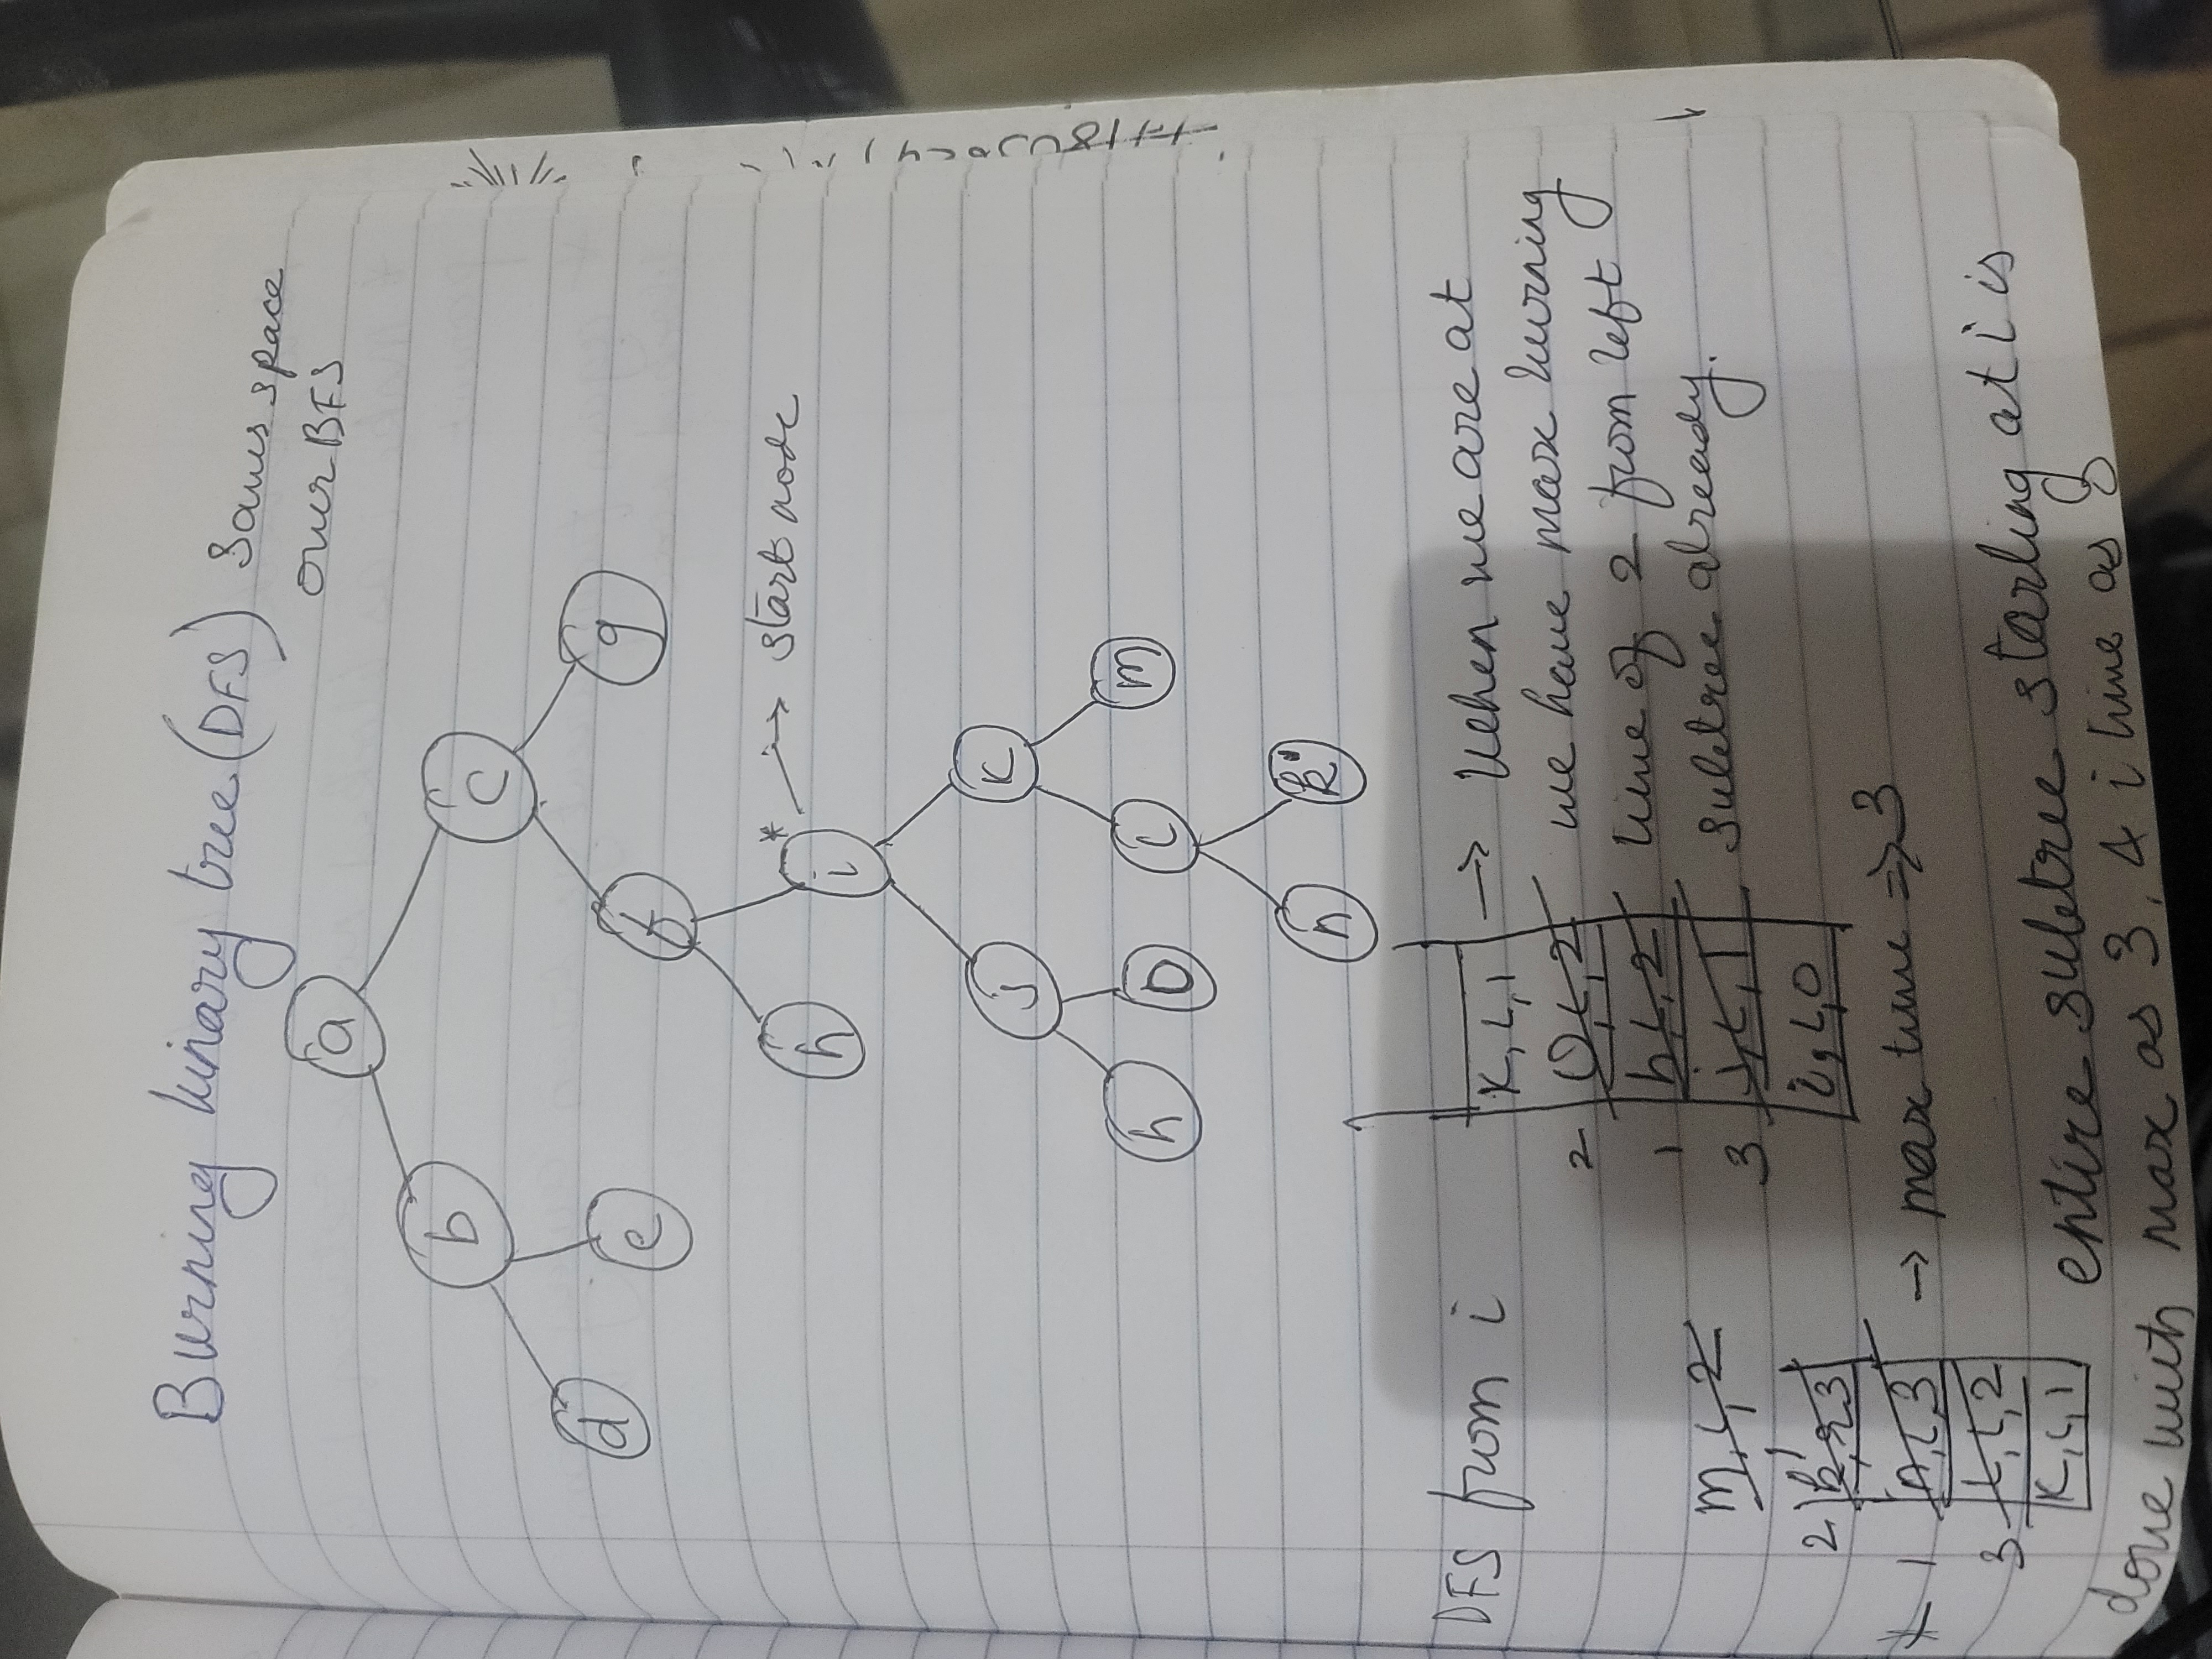 Burning binary tree (DFS) Saves space
over BFS
a
b
c
d
e
f
g
h
i* → start node
j
K
h
O
l
m
n
k'
DFS from i
K, L, 1 → When we are at
2 O, L, 2 we have max burning
1 h, L, 2 time of 2 from left
m, L, 2
3 j, L, 1 subtree already.
i, L, 0
2 k', r 3
* 1 n, L, 3 → max time => 3
3 L, L, 2
K, L, 1
entire subtree starting at i is
done with max as 3, & i time as